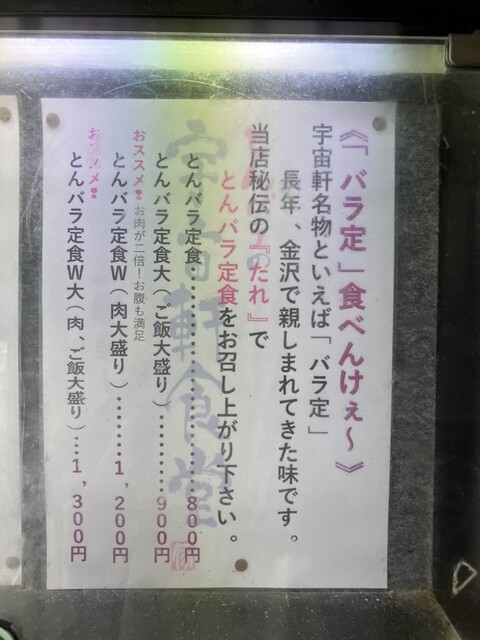 《「バラ定」食べんけぇ～》
宇宙軒名物といえば「バラ定」
長年、金沢で親しまれてきた味です。
当店秘伝の『たれ』で
とんバラ定食をお召し上がり下さい。
宇宙軒食堂
とんバラ定食………………800円
とんバラ定食大(ご飯大盛り)…………900円
おススメ!お肉が二倍!お腹も満足
とんバラ定食W(肉大盛り)………1,200円
おススメ!
とんバラ定食W大(肉、ご飯大盛り)…1,300円